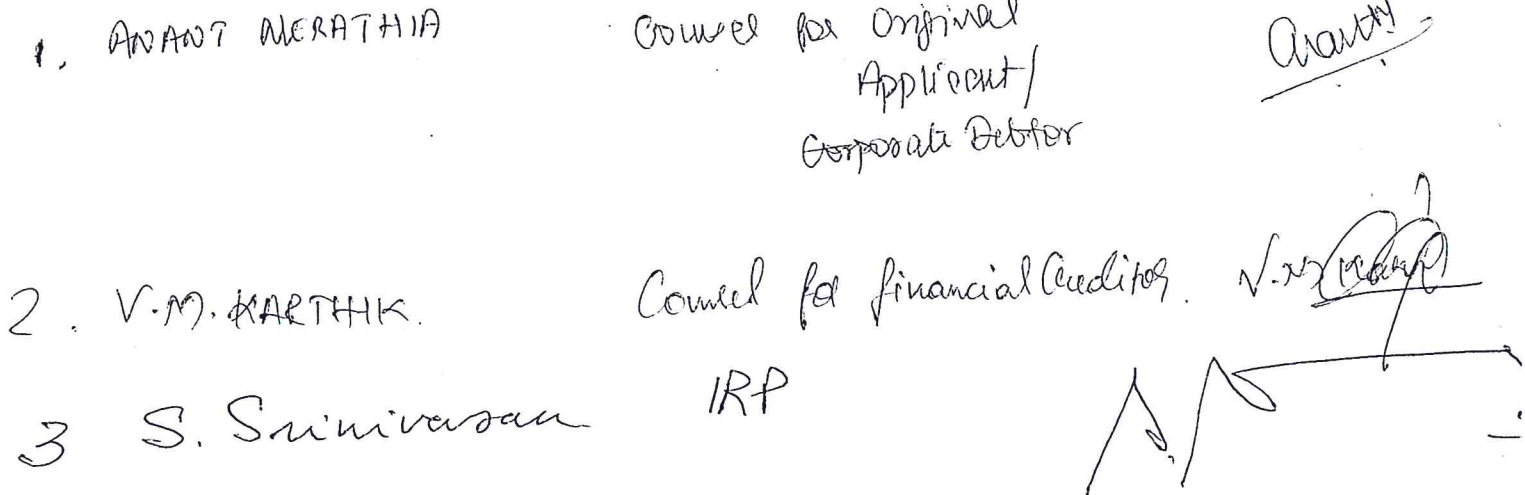 1. ANANT MERATHIA Counsel for Original
Applicant/
Corporate Debtor
2. V.M. KARTHIK. Counsel for financial Creditor.
3 S. Srinivasan IRP